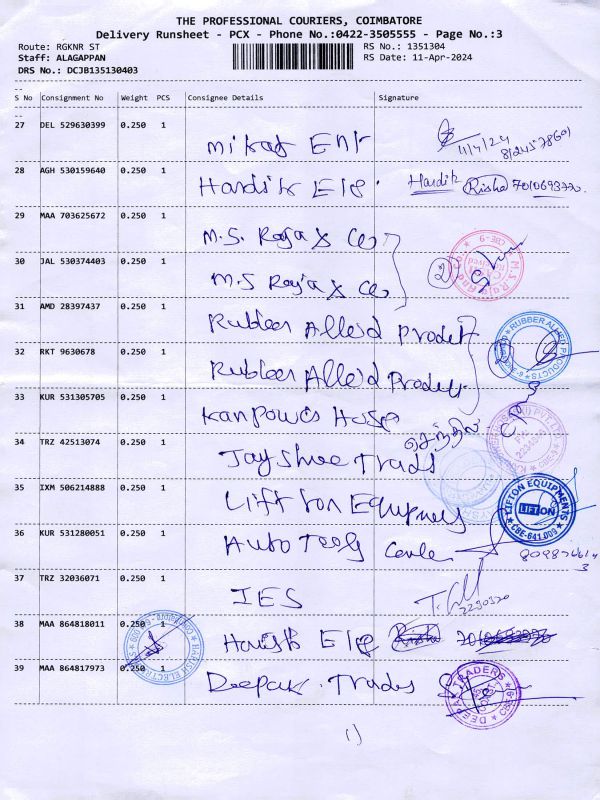 THE PROFESSIONAL COURIERS, COIMBATORE
Delivery Runsheet - PCX - Phone No.:0422-3505555 - Page No.:3
Route: RGKNR ST RS No.: 1351304
Staff: ALAGAPPAN RS Date: 11-Apr-2024
DRS No.: DCJB135130403
S No Consignment No Weight PCS Consignee Details Signature
27 DEL 529630399 0.250 1
11/4/24
28 AGH 530159640 0.250 1 Hardik Ele. Hardik Risha 7010693770.
29 MAA 703625672 0.250 1 M.S. Raja & Co
30 JAL 530374403 0.250 1 M.S Raja & Co 2
31 AMD 28397437 0.250 1 Rubber Alleid Produt
RUBBER ALLIED PRODUCTS
32 RKT 9630678 0.250 1 Rubber Alleid Produt
33 KUR 531305705 0.250 1 Kanpowes Huse
செந்தில்
34 TRZ 42513074 0.250 1 Jayshree Trads
35 IXM 506214888 0.250 1 Lifton Equpmey
LIFTON EQUIPMENTS
LIFTON
CBE-641.009
36 KUR 531280051 0.250 1 Auto Tools
37 TRZ 32036071 0.250 1 IES
38 MAA 864818011 0.250 1 Harish Ele
HARISH ELECTRICALS
39 MAA 864817973 0.250 1 Deepak. Trades
DEEPAK TRADERS